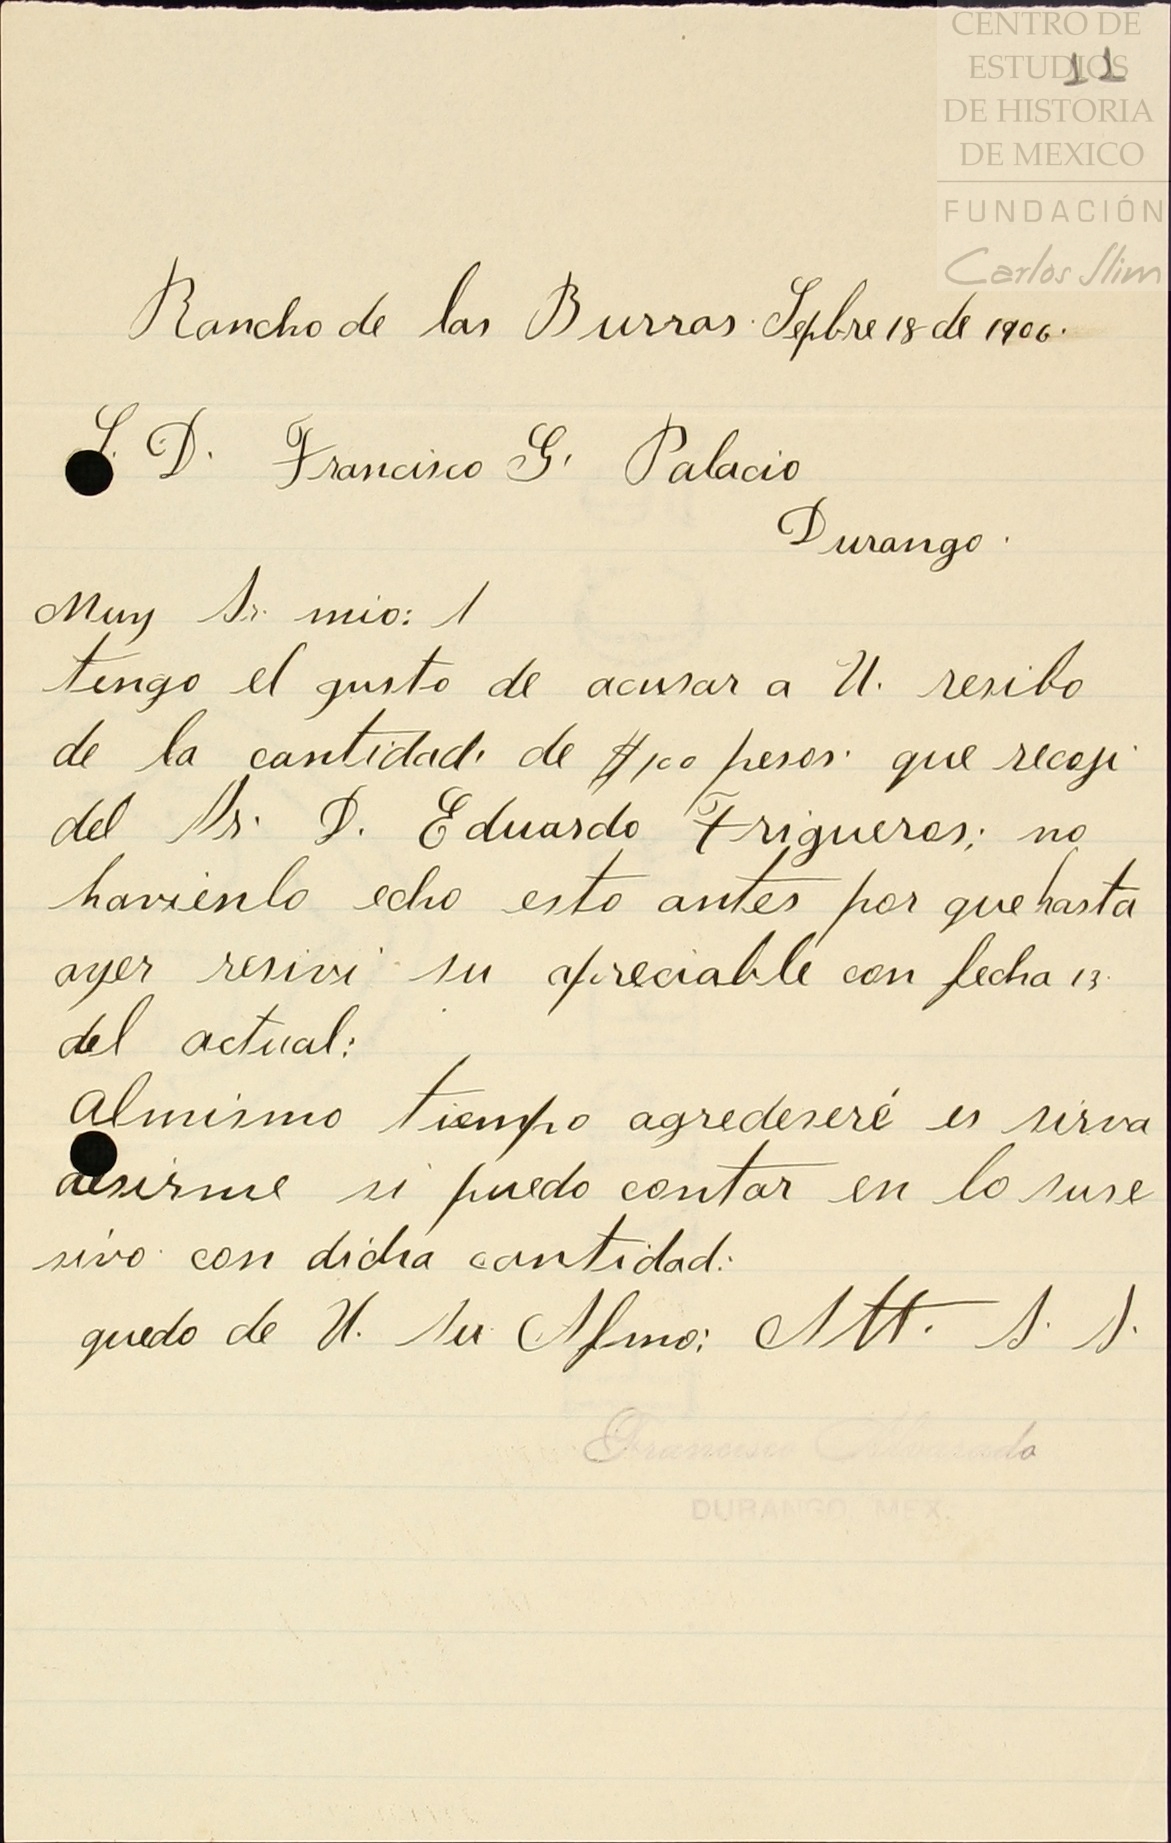 CENTRO DE
ESTUDIOS
11
DE HISTORIA
DE MEXICO
FUNDACIÓN
Carlos Slim
Rancho de las Burras. Sepbre 18 de 1906.
S. D. Francisco G. Palacio
Durango.
Muy Sr. mio:
tengo el gusto de acusar a U. resibo
de la cantidad. de $100 pesos. que recoji
del Sr. D. Eduardo Trigueros; no
havienlo echo esto antes por que hasta
ayer resivi su apreciable con fecha 13
del actual:
Almismo tiempo agredeseré es sirva
desirme si puedo contar en lo suse
sivo con dicha cantidad:
quedo de U. su Afmo: Att. S. S.
Francisco Alvarado
DURANGO, MEX.